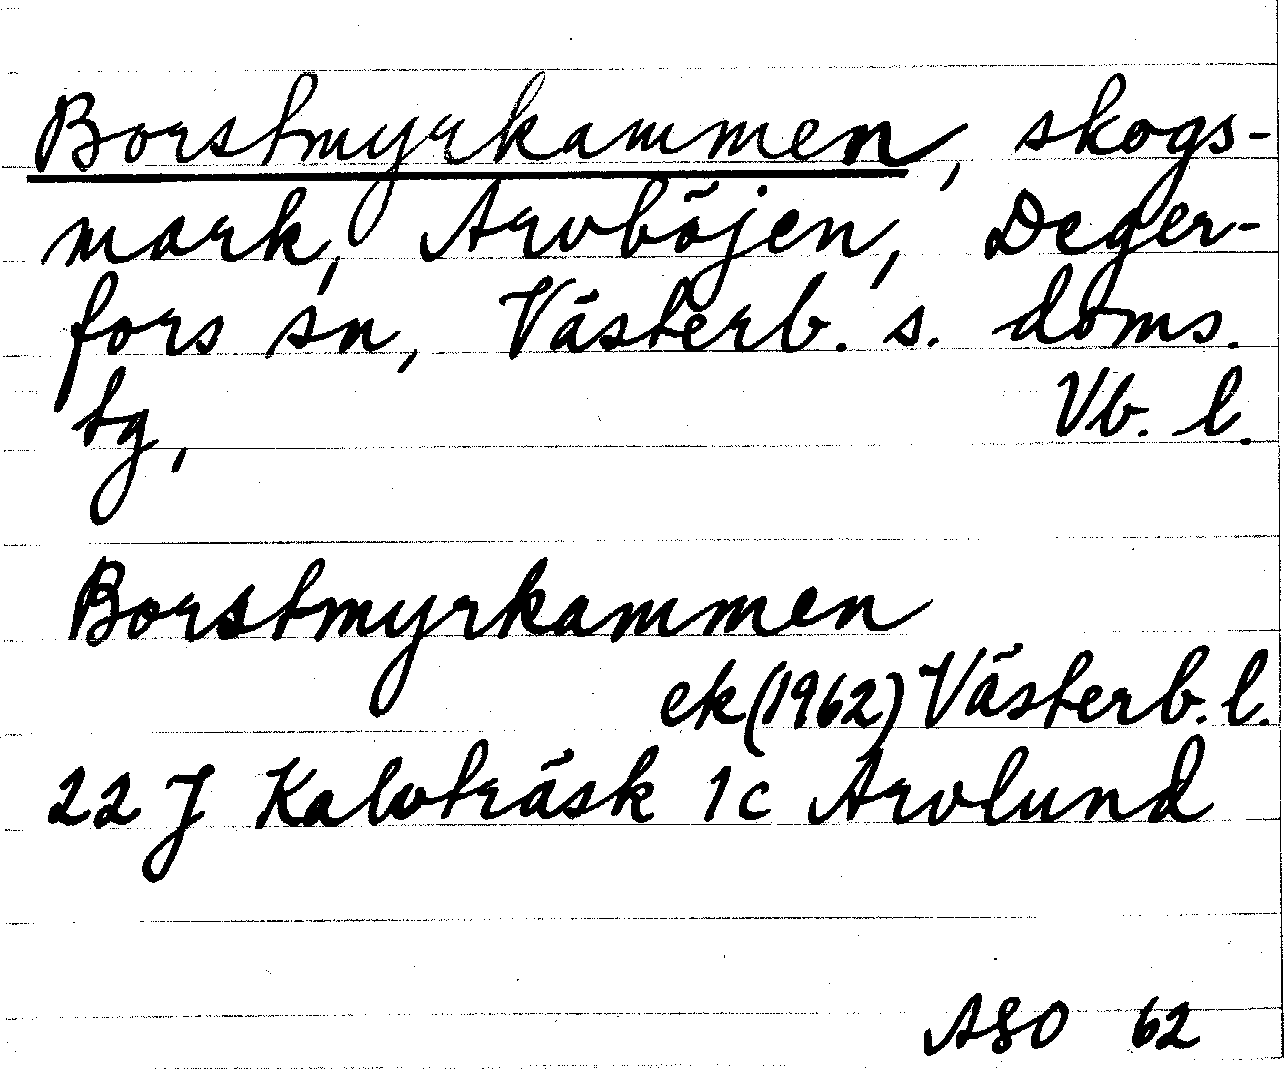 Borstmyrkammen, skogs-
mark, Arvböjen, Deger-
fors sn, Västerb. s. doms.
tg, Vb. l.
Borstmyrkammen
ek (1962) Västerb. l.
22 J Kalvträsk 1c Arvlund
ASO 62